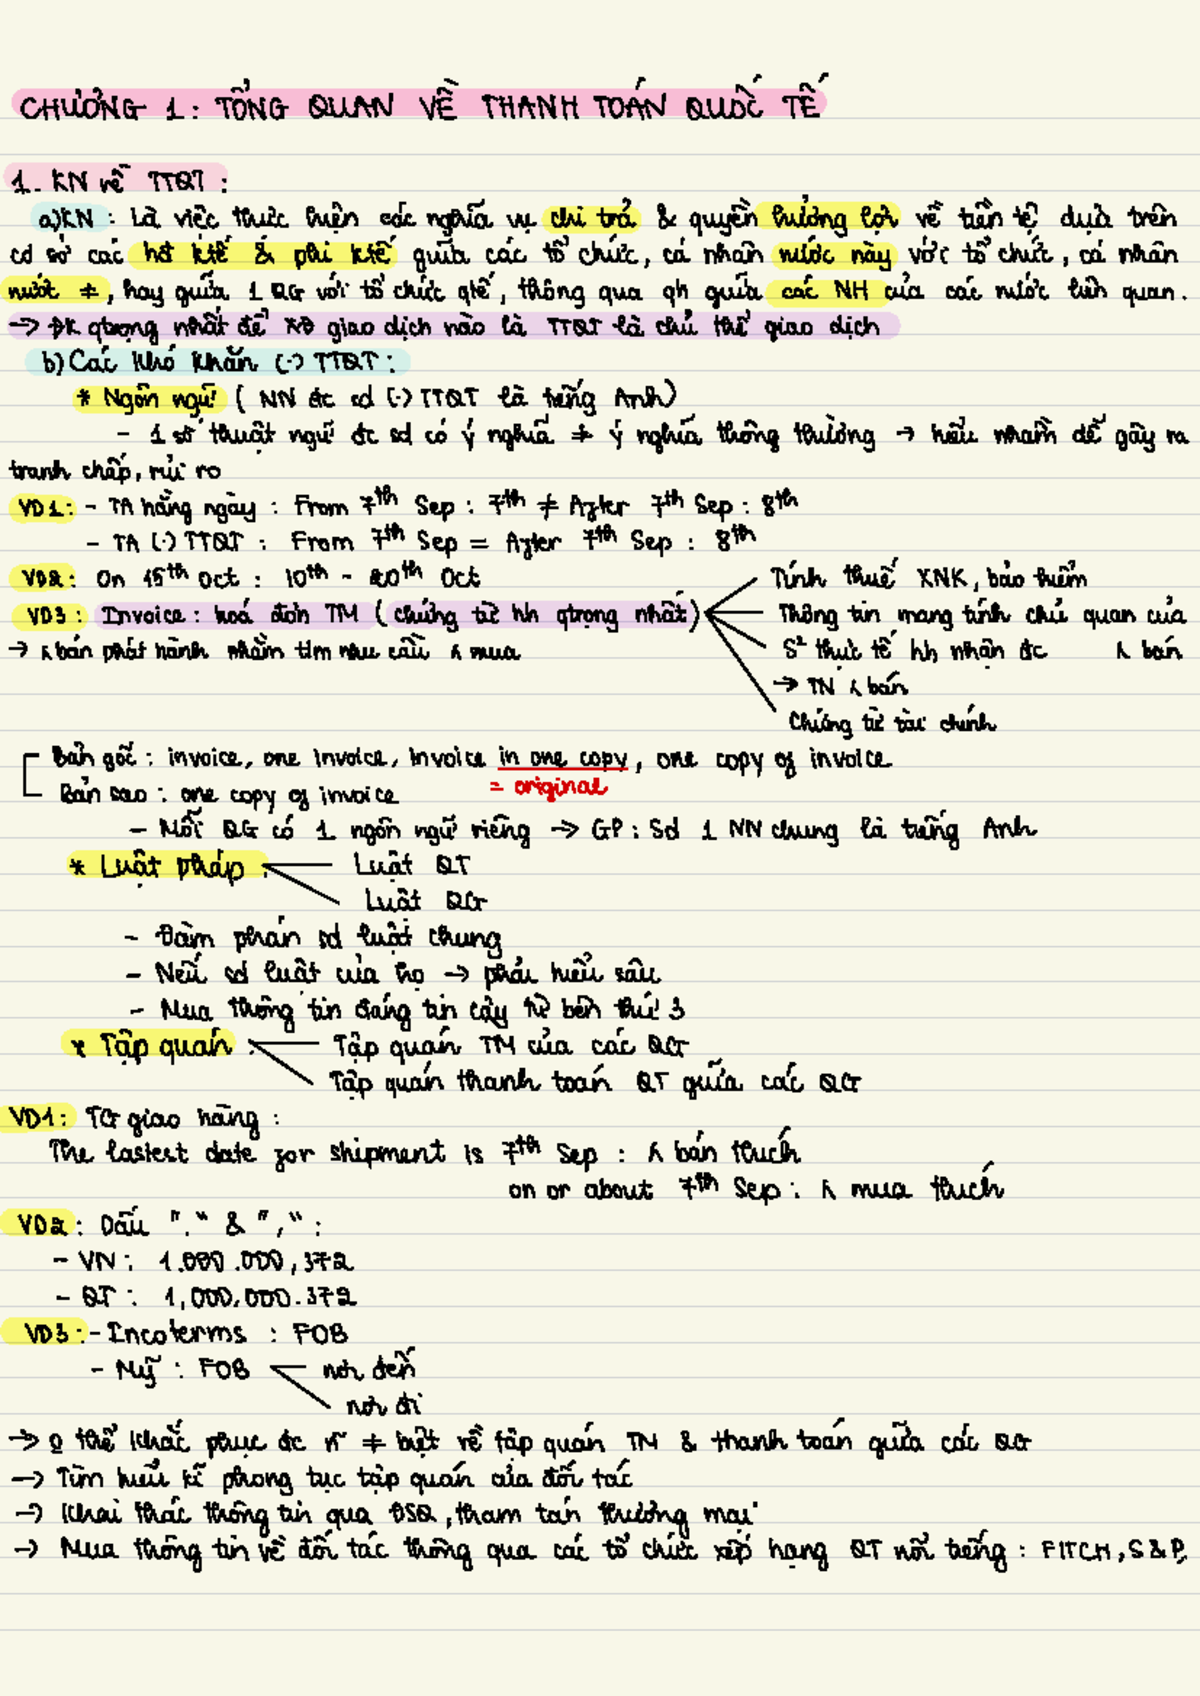 CHƯƠNG 1: TỔNG QUAN VỀ THANH TOÁN QUỐC TẾ
1. KN về TTQT:
a) KN: Là việc thực hiện các nghĩa vụ chi trả & quyền hưởng lợi về tiền tệ dựa trên
cơ sở các hđ ktế & phi ktế giữa các tổ chức, cá nhân nước này với tổ chức, cá nhân
nước ≠, hay giữa 1 QG với tổ chức qtế, thông qua qh giữa các NH của các nước liên quan.
→ ĐK qtrọng nhất để XĐ giao dịch nào là TTQT là chủ thể giao dịch
b) Các khó khăn (·) TTQT:
* Ngôn ngữ (NN đc sd (·) TTQT là tiếng Anh)
- 1 số thuật ngữ đc sd có ý nghĩa ≠ ý nghĩa thông thường → hiểu nhầm dễ gây ra
tranh chấp, rủi ro
VD1: - TA hằng ngày: From 7th Sep: 7th ≠ After 7th Sep: 8th
- TA (·) TTQT: From 7th Sep = After 7th Sep: 8th
VD2: On 15th Oct: 10th - 20th Oct
VD3: Invoice: hoá đơn TM (chứng từ hh qtrọng nhất)
→ bán phát hành nhằm tìm nhu cầu mua
Tính thuế XNK, bảo hiểm
Thông tin mang tính chủ quan của bán
S² thực tế hh nhận đc
→ TN bán
Chứng từ tài chính
Bản gốc: invoice, one invoice, invoice in one copy, one copy of invoice
= original
Bản sao: one copy of invoice
- Mỗi QG có 1 ngôn ngữ riêng → GP: Sd 1 NN chung là tiếng Anh
* Luật pháp:
Luật QT
Luật QG
- Đàm phán sd luật chung
- Nếu sd luật của họ → phải hiểu sâu
- Mua thông tin đáng tin cậy từ bên thứ 3
* Tập quán:
Tập quán TM của các QG
Tập quán thanh toán QT giữa các QG
VD1: TG giao hàng:
The lastest date for shipment is 7th Sep: bán thích
on or about 7th Sep: mua thích
VD2: Dấu "." & ",":
- VN: 1.000.000,372
- QT: 1,000,000.372
VD3: - Incoterms: FOB
- Mỹ: FOB
nơi đến
nơi đi
→ thể khắc phục đc ≠ biệt về tập quán TM & thanh toán giữa các QG
→ Tìm hiểu kĩ phong tục tập quán của đối tác
→ Khai thác thông tin qua ĐSQ, tham tán thương mại
→ Mua thông tin về đối tác thông qua các tổ chức xếp hạng QT nổi tiếng: FITCH, S&P,